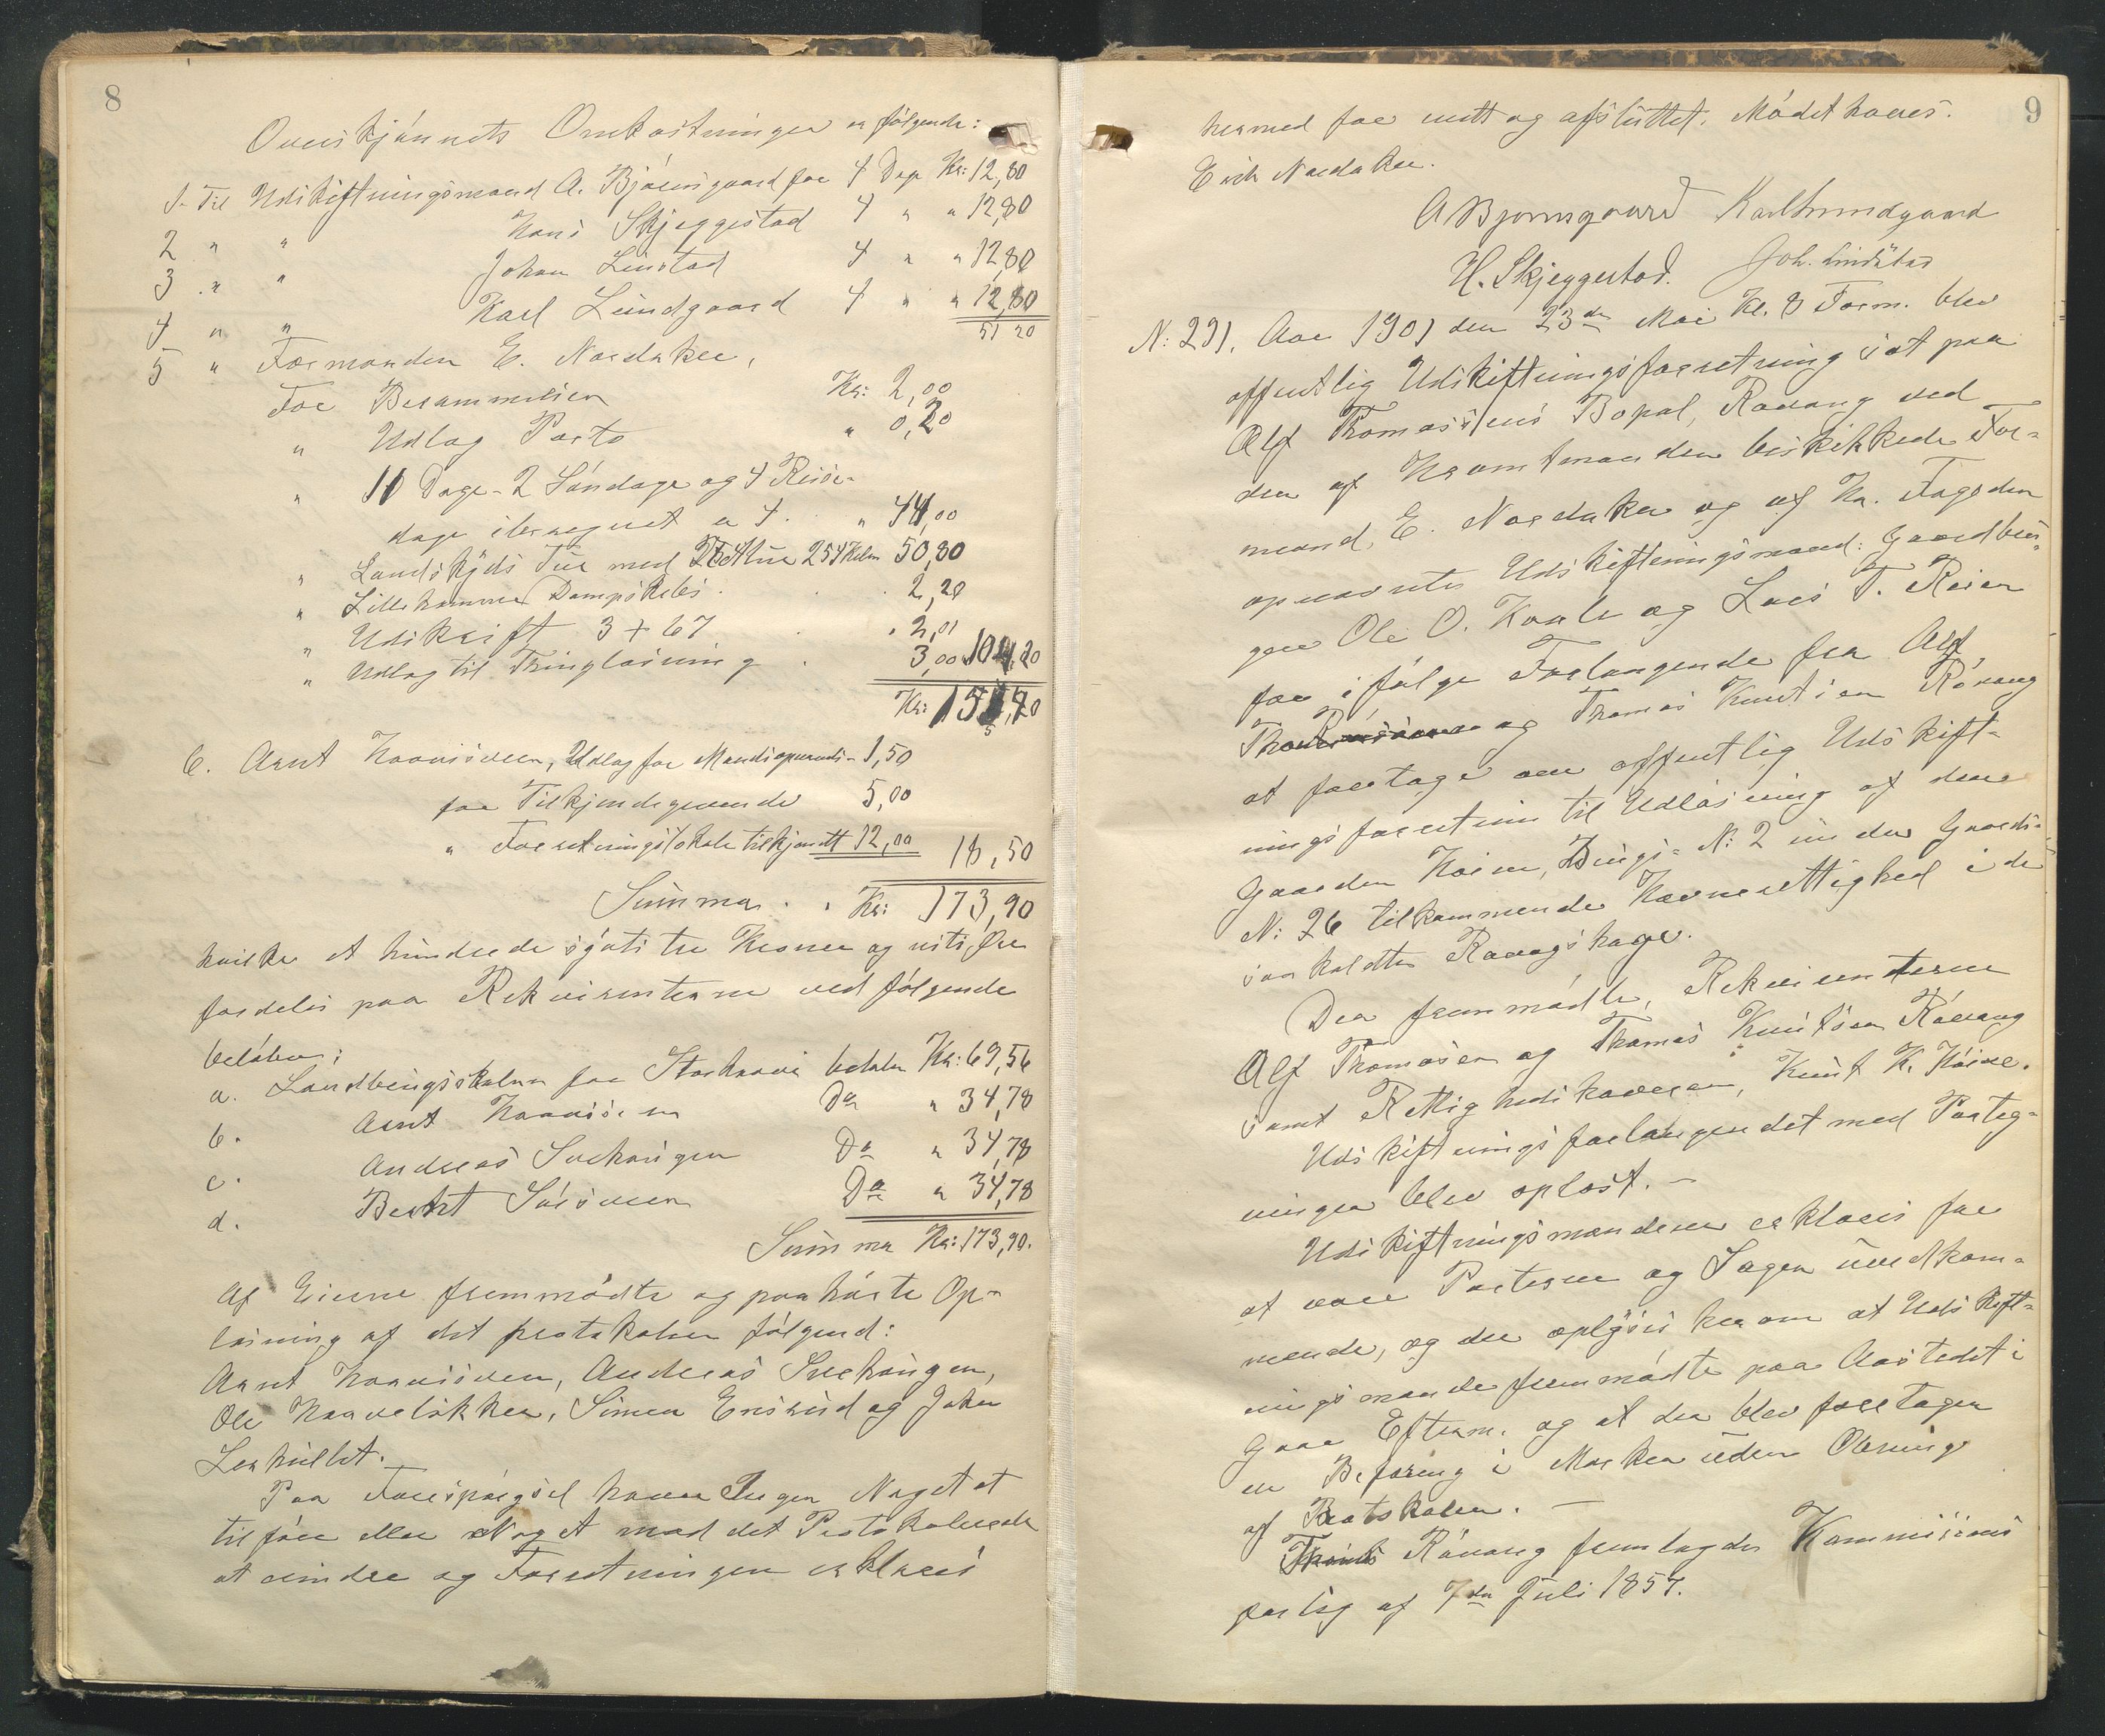 8
Overskjønnets Omkostninger er følgende:
1. Til Udskiftningsmand A. Bjørnsgaard for 4 Dage Kr: 12,80
2 " " Hans Skjeggestad 4 " " 12,80
3 " " Johan Linstad 4 " " 12,80
4 " " Karl Lundgaard 4 " " 12,80
51 20
5 " Formanden E. Nordaker,
For Berammelsen Kr: 2,00
" Udlag Porto " 0,20
" 11 Dage - 2 Søndage og 4 Reise-
dage iberegnet a 4. " 44,00
" Landskyds Tur med Retur 254 Kilm 50,80
" Lillehammer Dampskibs . . 2,20
" Udskrift 3 + 67 . " 2,01
" Udlag til Thinglæsning . 3,00 104,20
Kr: 155,40
6. Arnt Haavisveen, Udlag for Mandsopnævnelse 1,50
for Tilkjendegivende 5,00
" Forretningslokale tilkjendt 12,00 18,50
Summa . . Kr: 173,90
hvilke et hundrede sytti tre Kroner og nitti Øre
fordeles paa Rekvirenterne ved følgende
beløber:
a. Landbrugsskolen for Storhove betaler Kr: 69,56
b. Arnt Haavisveen Do " 34,78
c. Andreas Suckungen Do " 34,78
d. Berht Sørsveen Do " 34,78
Summa Kr: 173,90.
Af Eierne fremmødte og paahørte Op-
læsning af det protokolerede følgende:
Arnt Haavisveen, Andreas Suckungen,
Ole Haaveløkken, Simen Ensrud og Johan
Lerhullet.
Paa Forespørgsel havde Ingen Noget at
tilføie eller Noget mod det Protokolerede
at erindre og Forretningen erklæres
9
hermed for endt og afsluttet. Mødet hævet.
Erik Nordaker.
A Bjørnsgaard Karl Lundgaard
H. Skjeggestad. Joh. Lindstad
N: 291. Aar 1901 den 23de Mai Kl. 8 Form. blev
offentlig Udskiftningsforretning sat paa
Alf Thomassens Bopæl, Røvang ved
den af Hr amtmanden beskikkede For-
mand, E. Nordaker og af Hr. Fogden
opnævnte Udskiftningsmænd: Gaardbru-
gere Ole O. Kaale og Lars T. Reien
for ifølge Forlangende fra Alf
og Thomas Knutsen Røvang
at foretage en offentlig Udskift-
ningsforretning til Udløsning af den
Gaarden Høine, Brugs- N: 2 under Gaards-
N: 26 tilkommende Havnerettighed i de
saakaldte Røvangshage.
Der fremmødte, Rekvirenterne
Alf Thomasen og Thomas Knutsen Røvang
samt Rettighedshaveren, Knut K. Høine.
Udskiftningsforlangendet med Paateg-
ninger blev oplæst. –
Udskiftningsmændene erklæres for
at være Parterne og Sagen uvedkom-
mende, og der oplyses herom at Udskift-
ningsmændene fremmødte paa Aastedet i
Gaar Efterm. og at der blev foretagen
en Befaring i Marken uden Aabning
af Protokolen. –
Røvang fremlagde Kommissions
forlig af 7de Juli 1857.